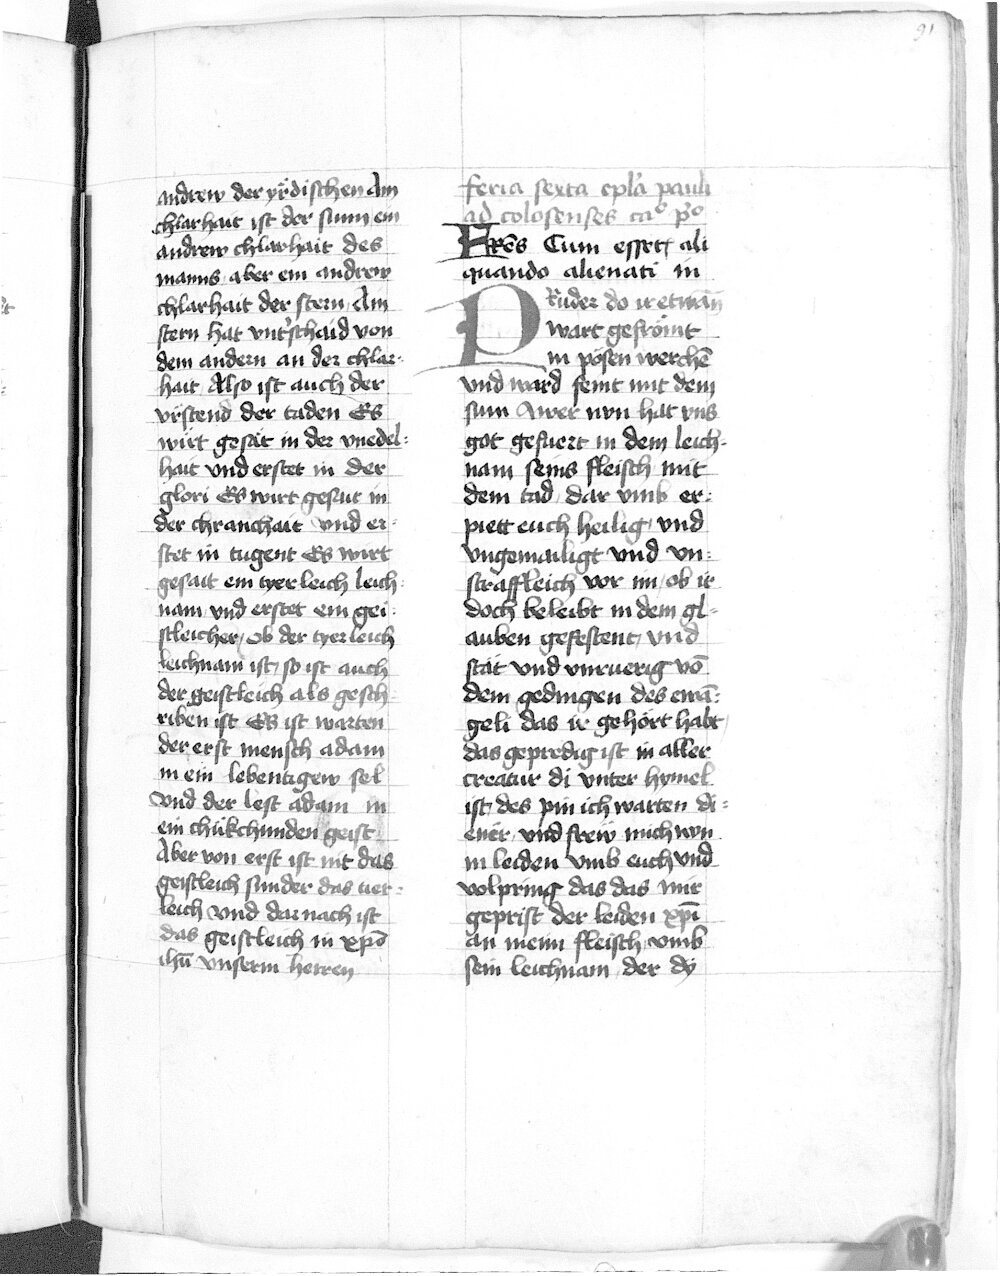 91
andrew der yrdischen Am
chlarhait ist der sunn ein
andrew chlarhait des
manns aber ein andrew
chlarhait der stern Am
stern hat vnt'schaid von
dem andern an der chlar-
hait Also ist auch der
vrstend der taden Es
wirt gesät in der vnedel-
hait vnd erstet in der
glori Es wirt gesät in
der chranchait vnd er-
stet in tugent Es wirt
gesait ein tyerleich leich-
nam vnd erstet ein gei-
stleicher / ob der tyerleich
leichnam ist / so ist auch
der geistleich als gesch-
riben ist Es ist warten
der erst mensch adam
in ein lebentigew sel
vnd der lest adam in
ein chükchunden geist
Aber von erst ist nit das
geistleich sunder das tier-
leich vnd darnach ist
das geistleich in xpō
ihū vnserm herren
feria sexta epl'a pauli
ad colosenses cao po
Fres Cum essetz ali
quando alienati in
Pruder do ir etwān
wart gefrömt
in posen werchē
vnd ward feint mit dem
sinn Awer nvn hat vns
got gefuert in dem leich-
nam seins fleisch mit
dem tad / dar vmb er-
piett euch heilig / vnd
vngemailigt vnd vn-
straffleich vor im / ob ir
doch beleibt in dem gl-
auben gefestent / vnd
stät vnd vnruerig vō
dem gedingen des ewā-
geli das ir gehört habt /
das gepredig ist in aller
creatur di vnter hymel
ist / des pin ich warten di-
ener / vnd frew mich nvn
in leiden vmb euch vnd
volpring das das mir
geprist der leiden xpī
an meim fleisch / vmb
sein leichnam / der dy